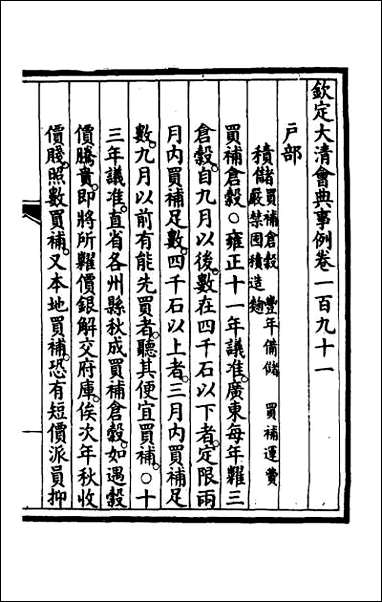 欽定大清會典事例卷一百九十一
戶部
積儲買補倉穀 豐年備儲 買補運費
嚴禁囤積造麴
買補倉穀○雍正十一年議准廣東每年糶三
倉穀自九月以後數在四千石以下者定限兩
月內買補足數四千石以上者三月內買補足
數九月以前有能先買者聽其便宜買補○十
三年議准直省各州縣秋成買補倉穀如遇穀
價騰貴即將所糶價銀解交府庫俟次年秋收
價賤照數買補又本地買補恐有短價派員抑